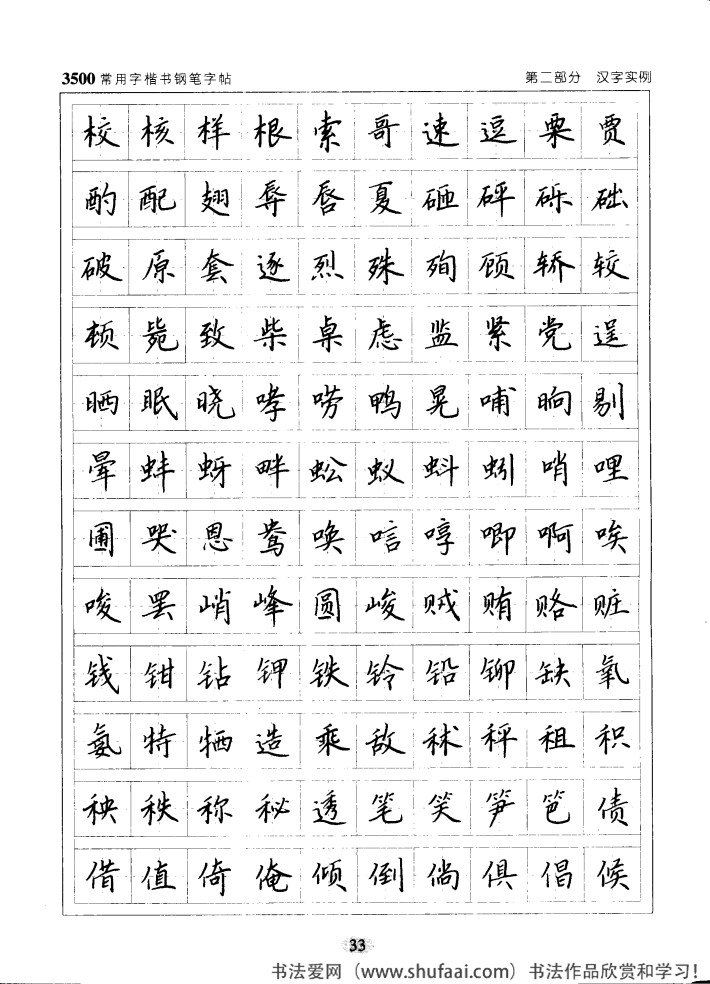 3500常用字楷书钢笔字帖 第二部分 汉字实例
校核样根索哥速逗栗贾
酌配翅辱唇夏砸砰砾础
破原套逐烈殊殉顾轿较
顿毙致柴桌虑监紧党逞
晒眠晓哮唠鸭晃哺晌剔
晕蚌蚜畔蚣蚊蚪蚓哨哩
圃哭恩鸯唤唁哼唧啊唉
唆罢峭峰圆峻贼贿赂赃
钱钳钻钾铁铃铅铆缺氧
氨特牺造乘敌秫秤租积
秧秩称秘透笔笑笋笆债
借值倚俺倾倒倘俱倡候
33
书法爱网（www.shufaai.com）书法作品欣赏和学习！